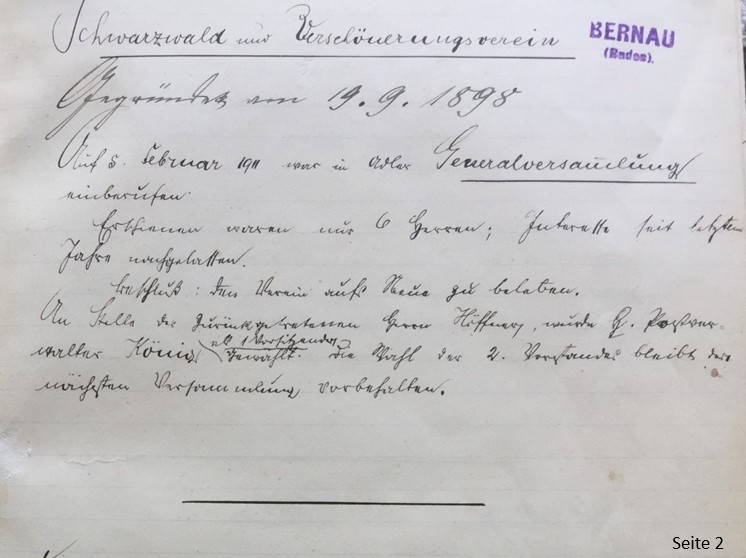 Schwarzwald und Verschönerungsverein
BERNAU
(Baden).
Gegründet am 19.9.1898
Auf 5. Februar 1911 war in Adler Generalversammlung
einberufen.
Erschienen waren nur 6 Herren; Interesse seit letztem
Jahre nachgelassen.
Beschluß: den Verein aufs Neue zu beleben.
An Stelle des zurückgetretenen Herrn , wurde H. Postver-
walter König als 1 Vorsitzender gewählt. Die Wahl des 2. Vorstandes bleibt der
nächsten Versammlung vorbehalten.
Seite 2